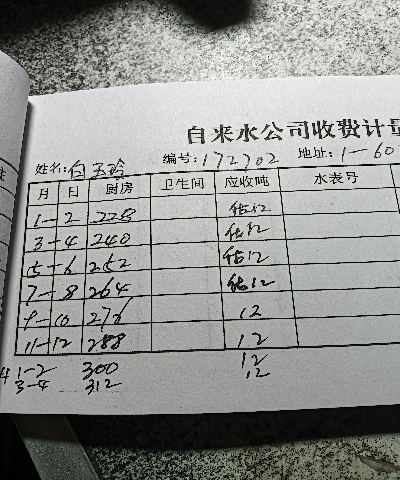 自来水公司收费计量
姓名: 白玉玲 编号: 172702 地址: 1-60
月 日 厨房 卫生间 应收吨 水表号
1-2 228 估12
3-4 240 估12
5-6 252 估12
7-8 264 估12
9-10 276 12
11-12 288 12
1-2 300 12
3-4 312 12